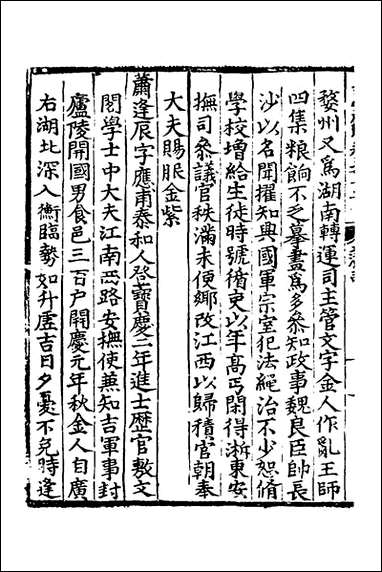 婺州又爲湖南轉運司主管文字金人作亂王師
四集粮餉不乏摹畫爲多參知政事魏良臣帥長
沙以名聞擢知興國軍宗室犯法繩治不少恕脩
學校增給生徒時號循吏以年高丐閑得淅東安
撫司參議官秩滿未便鄉改江西以歸積官朝奉
大夫賜服金紫
蕭逢辰字應甫泰和人登寶慶二年進士歷官敷文
閣學士中大夫江南西路安撫使兼知吉軍事封
廬陵開國男食邑三百户開慶元年秋金人自廣
右湖北深入衡臨勢如升虗吉日夕憂不免時逢